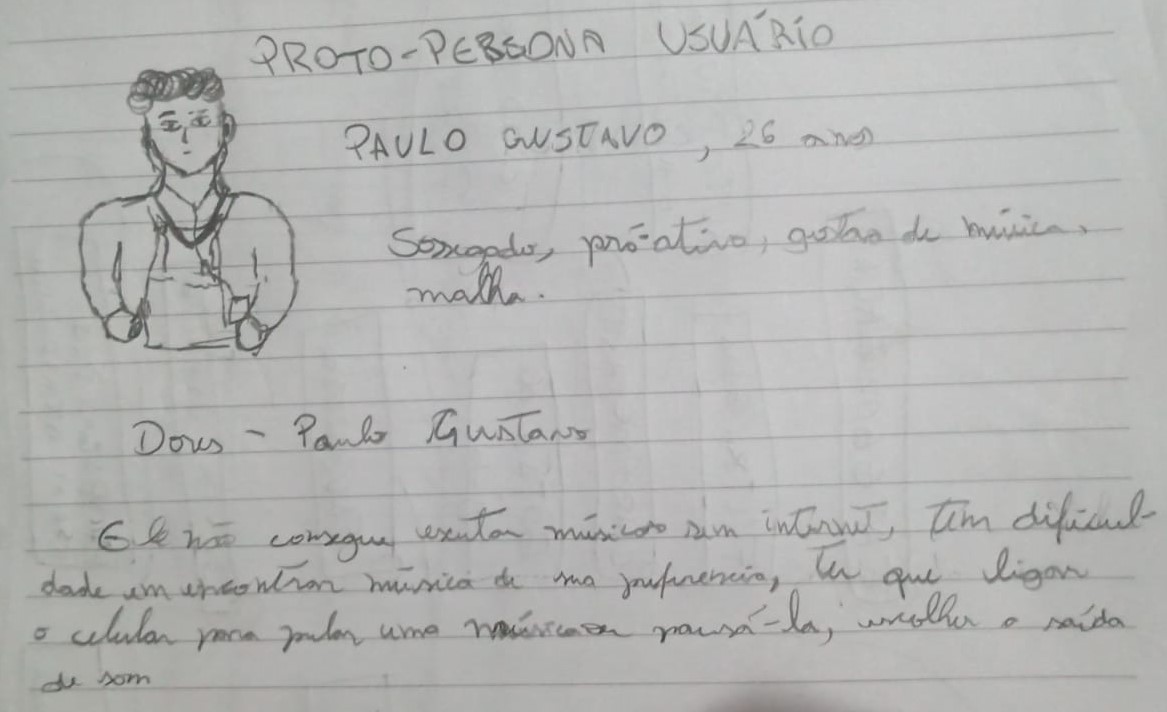 PROTO-PERSONA USUÁRIO
PAULO GUSTAVO, 26 anos
Sossegado, pró-ativo, gosta de música,
malha.
Dores - Paulo Gustavo
Ele não consegue escutar músicas sem internet, tem dificul-
dade em encontrar música de sua preferencia, ter que ligar
o celular para pular uma música ou pausá-la, escolher a saída
de som